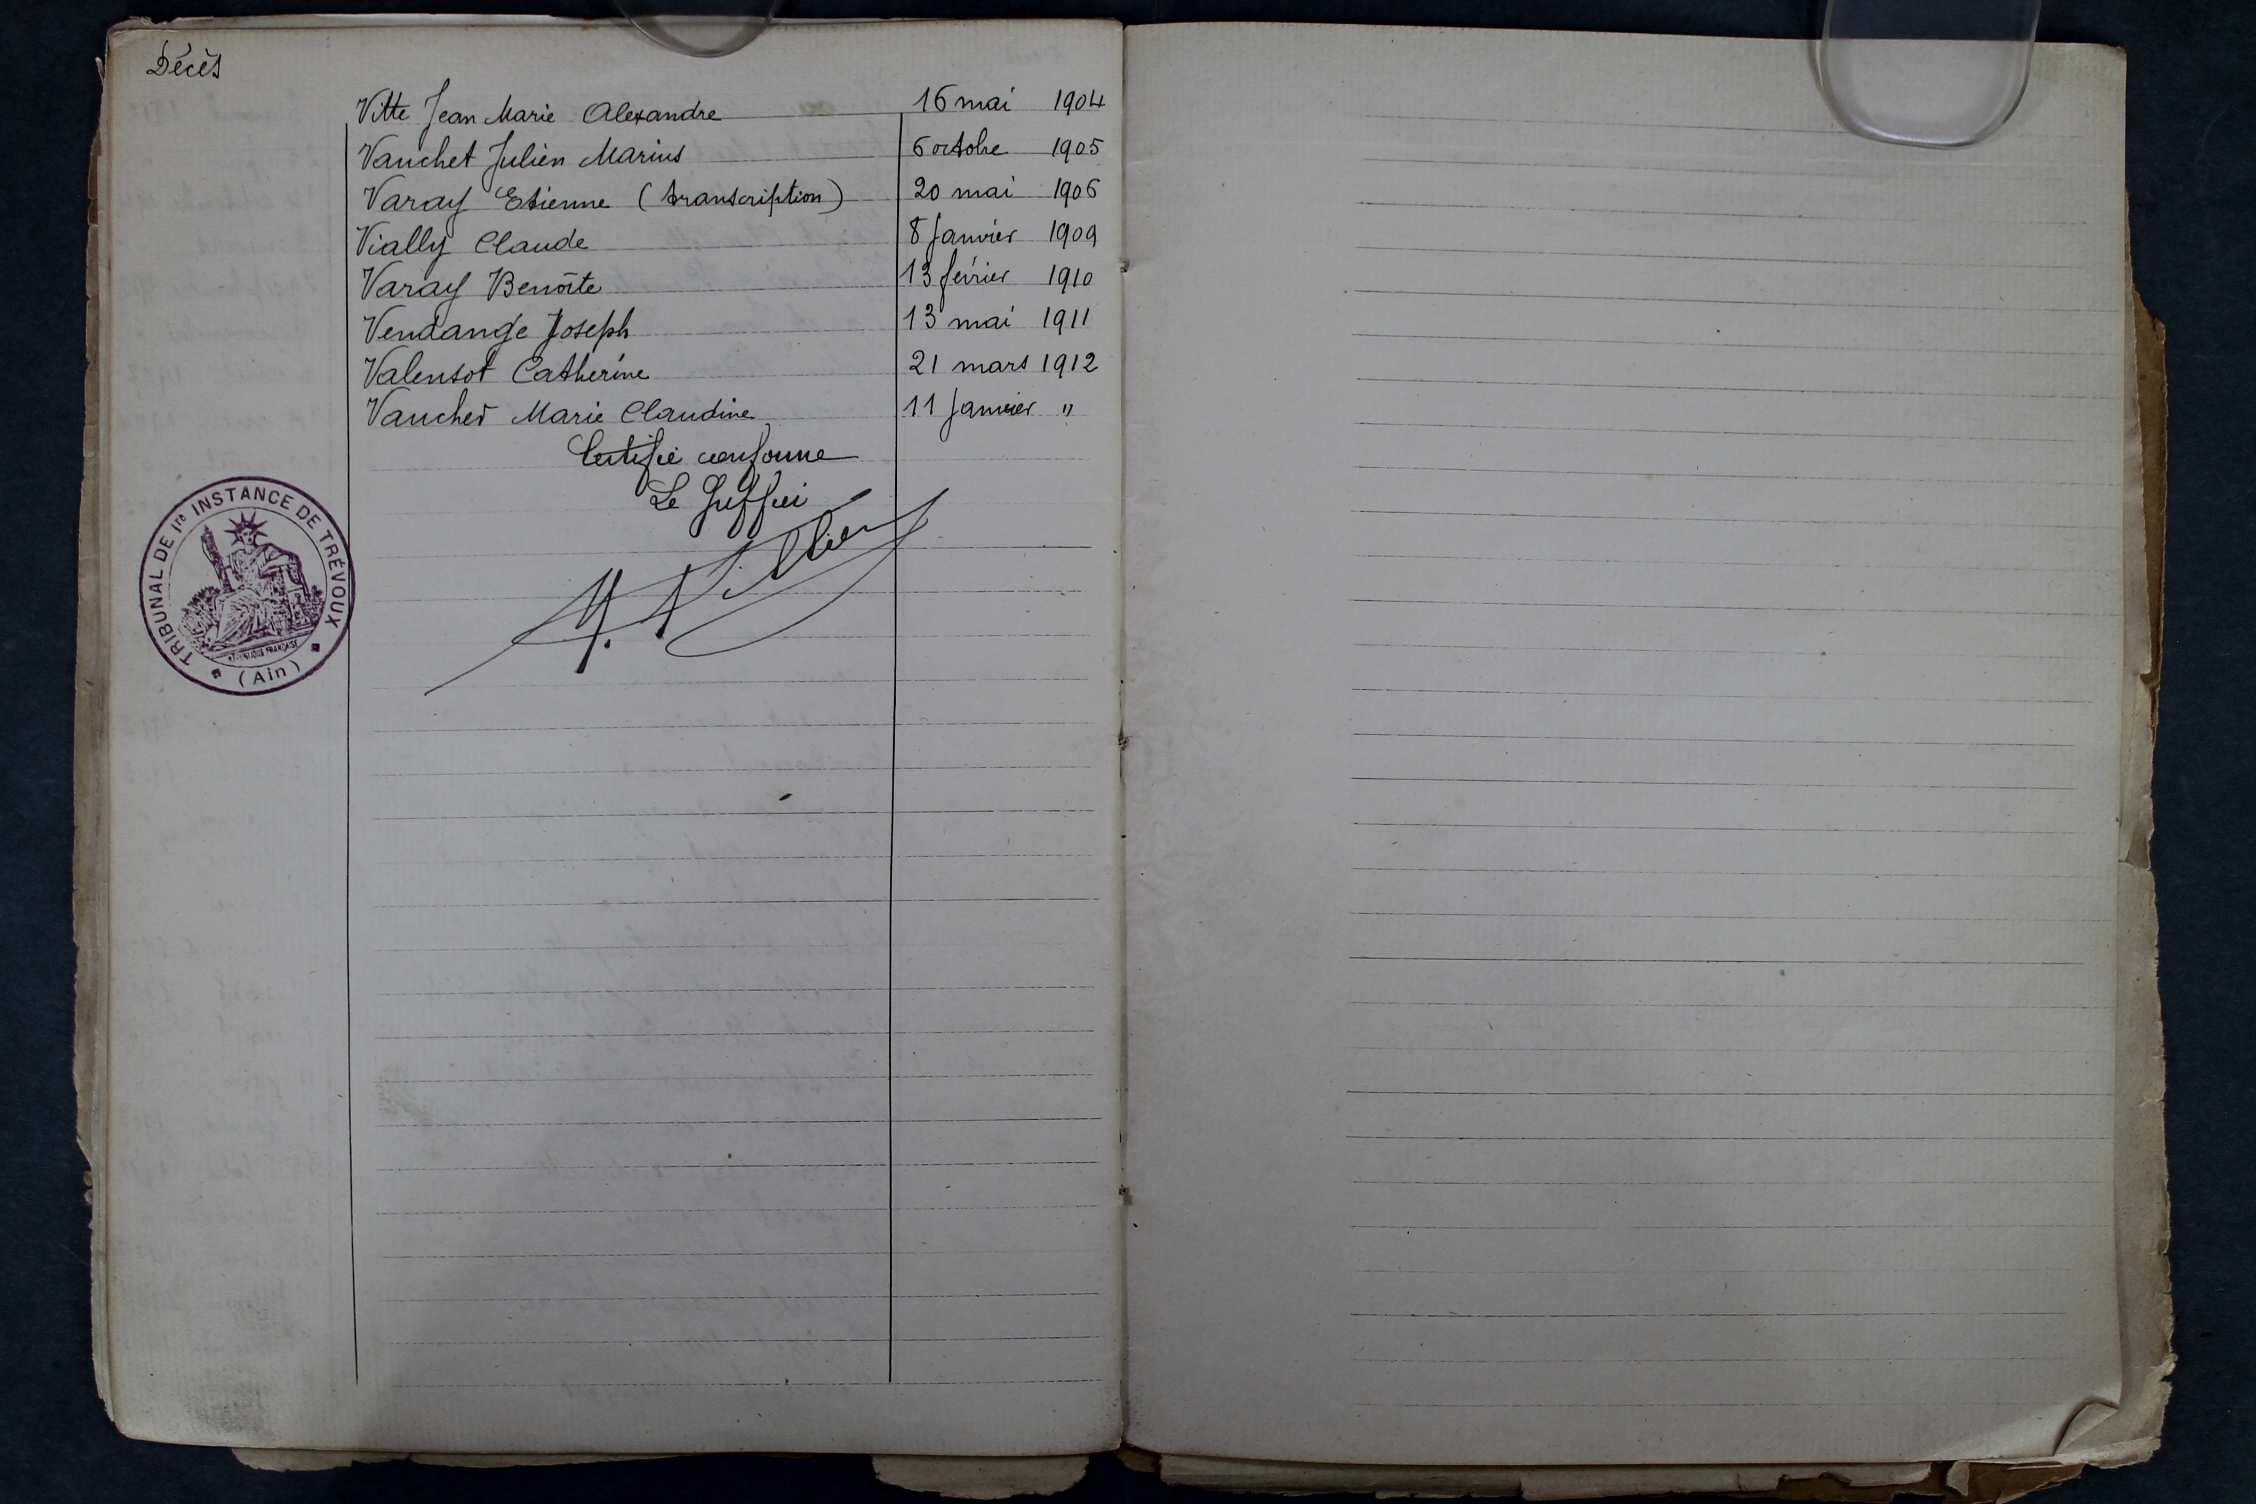 Décès
Vitte Jean Marie Alexandre 16 mai 1904
Vauchet Julien Marius 6 octobre 1905
Varay Etienne (transcription) 20 mai 1906
Vially Claude 8 Janvier 1909
Varay Benoîte 13 février 1910
Vendange Joseph 13 mai 1911
Valensot Catherine 21 mars 1912
Vaucher Marie Claudine 11 Janvier "
Certifié conforme
Le Greffier
TRIBUNAL DE 1re INSTANCE DE TRÉVOUX
RÉPUBLIQUE FRANÇAISE
(Ain)